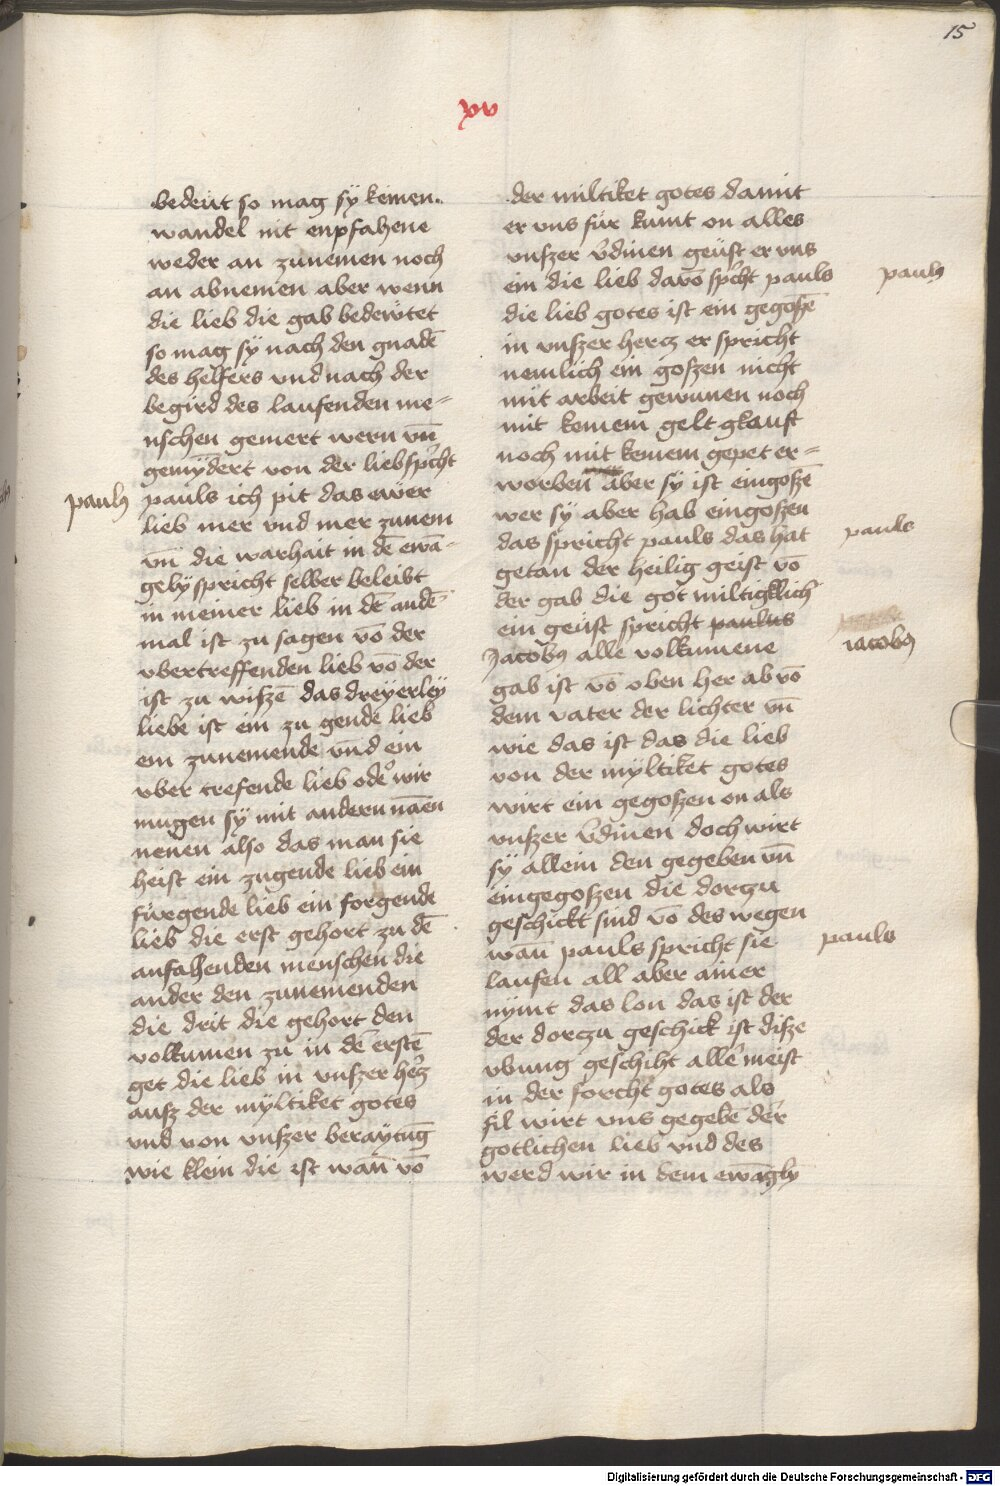 15
xv
bedeüt so mag sÿ keinen
wandel nit enpfahene
weder an zunemen noch
an abnemen aber wenn
die lieb die gab bedewtet
so mag sÿ nach den gnadē
des helfers vnd nach der
begird des laufenden me=
nschen gemert wern vn̄
gemÿdert von der lieb spͤcht
pauls ich pit das ewer
lieb mer vnd mer zunem
vn̄ die warhait in dē ewā=
gelÿ spricht selber beleibt
in meiner lieb in dē andē
mal ist zu sagen vō der
vbertreffenden lieb vō der
ist zu wißē das dreÿerleÿ
liebe ist ein zu gende lieb
ein zunemende vnd ein
vber trefende lieb odeͬ wir
mugen sÿ mit andern namen
nenen also das man sie
heist ein zugende lieb ein
fürgende lieb ein forgende
lieb die erst gehort zu dē
anfahenden menschen die
ander den zunemenden
die drit die gehort den
volkumen zu in dē erstē
get die lieb in vnßer hertz
auß der mÿltiket gotes
vnd von vnßer beraÿtūg
wie klein die ist wan̄ vō
paulꝰ
der miltiket gotes damit
er vns für kumt on alles
vnßer v̄dinen geüst er vns
ein die lieb davō spͤcht pauls
die lieb gotes ist ein gegoßē
in vnßer hercz er spricht
nemlich ein goßen nicht
mit arbeit gewunen noch
mit keinem gelt gkauft
noch mit keinem gepet er=
worben aber sÿ ist eingoßē
wer sÿ aber hab eingoßen
das spricht pauls das hat
getan der heilig geist vō
der gab die got miltigklich
ein geüst spricht paulus
Jacobꝰ alle volkumene
gab ist vō oben her ab vō
dem vater der lichter vn̄
wie das ist das die lieb
von der mÿltiket gotes
wirt ein gegoßen on als
vnßer v̄dinen doch wirt
sÿ allein den gegeben vn̄
eingegoßen die dorczu
geschickt sind vō des wegen
wan̄ pauls spricht sie
laufen all aber ainer
nÿmt das lon das ist der
der dorczu geschick ist diße
vbung geschiht alleͬ meist
in der forcht gotes als
fil wirt vns gegebē der
gotlichen lieb vnd des
werd wir in dem ewāgly
paulꝰ
pauls
iacobꝰ
pauls
Digitalisierung gefördert durch die Deutsche Forschungsgemeinschaft - DFG